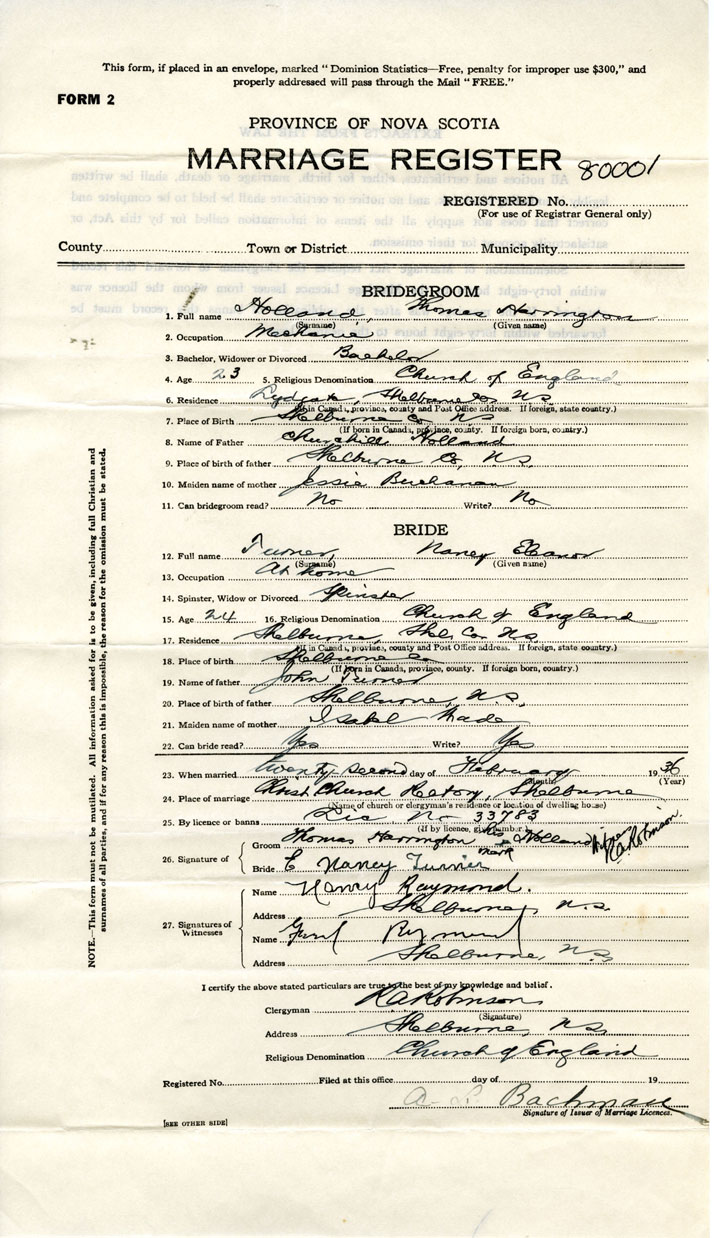 This form, if placed in an envelope, marked "Dominion Statistics—Free, penalty for improper use $300," and
properly addressed will pass through the Mail "FREE."
FORM 2
PROVINCE OF NOVA SCOTIA
MARRIAGE REGISTER 80001
REGISTERED No.
(For use of Registrar General only)
County Town or District Municipality
BRIDEGROOM
1. Full name Holland, Thomas Harrington
(Surname) (Given name)
2. Occupation Mechanic
3. Bachelor, Widower or Divorced Bachelor
4. Age 23 5. Religious Denomination Church of England
6. Residence Lydgate, Shelburne Co. N.S.
(If in Canada, province, county and Post Office address. If foreign, state country.)
7. Place of Birth Shelburne Co. N.S.
(If born in Canada, province, county. If foreign born, country.)
8. Name of Father Churchill Holland
9. Place of birth of father Shelburne Co. N.S.
10. Maiden name of mother Jessie Buchanan
11. Can bridegroom read? No Write? No
BRIDE
12. Full name Turner, Nancy Eleanor
(Surname) (Given name)
13. Occupation At home
14. Spinster, Widow or Divorced Spinster
15. Age 24 16. Religious Denomination Church of England
17. Residence Shelburne, Shel. Co. N.S.
(If in Canada, province, county and Post Office address. If foreign, state country.)
18. Place of birth Shelburne Co
(If born in Canada, province, county. If foreign born, country.)
19. Name of father John Turner
20. Place of birth of father Shelburne, N.S.
21. Maiden name of mother Isabel
22. Can bride read? Yes Write? Yes
23. When married twenty second day of February 1936
(Month) (Year)
24. Place of marriage Christ Church Rectory, Shelburne
(Name of church or clergyman's residence or location of dwelling house)
25. By licence or banns Lic No 33783
(If by licence, give number.)
26. Signature of
Groom Thomas Harrington his mark Holland Witness R.A. Robinson
Bride E Nancy Turner
27. Signatures of Witnesses
Name Nancy Raymond.
Address Shelburne, N.S.
Name
Address Shelburne, N.S.
I certify the above stated particulars are true to the best of my knowledge and belief.
Clergyman R.A. Robinson
(Signature)
Address Shelburne, N.S.
Religious Denomination Church of England
Registered No. Filed at this office day of 19
Bachman
Signature of Issuer of Marriage Licences.
[SEE OTHER SIDE]
NOTE.—This form must not be mutilated. All information asked for is to be given, including full Christian and
surnames of all parties, and if for any reason this is impossible, the reason for the omission must be stated.